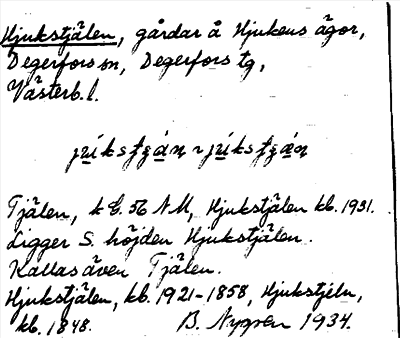 Hjukstjälen, gårdar å Hjukens ägor,
Degerfors sn, Degerfors tg,
Västerb. l.
Tjälen, k E. 56 NM, Hjukstjälen kb. 1931.
Ligger S. höjden Hjukstjälen.
Kallas även Tjälen.
Hjukstjälen, kb. 1921-1858, Hjukstjeln,
kb. 1848. B. Nygren 1934.